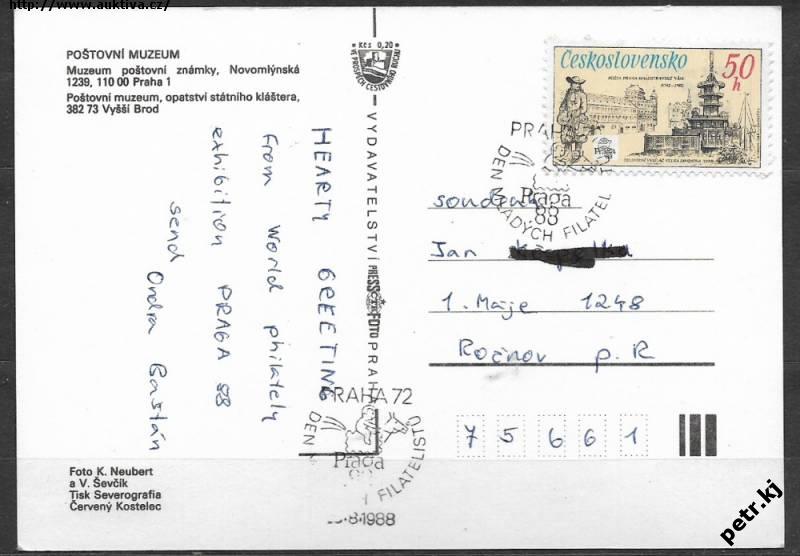 http://www.auktiva.cz/
POŠTOVNÍ MUZEUM
Muzeum poštovní známky, Novomlýnská
1239, 110 00 Praha 1
Poštovní muzeum, opatství státního kláštera,
382 73 Vyšší Brod
HEARTY GREETING
from World philately
exhibition PRAGA 88
send Ondra Baštán
Foto K. Neubert
a V. Ševčík
Tisk Severografia
Červený Kostelec
Kčs 0,20
VE PROSPĚCH CESTOVNÍHO RUCHU
VYDAVATELSTVÍ PRESSFOTO PRAHA
Československo
50 h
PRAHA
DEN MLADÝCH FILATEL
Praga
88
soudruh
Jan
1. Máje 1248
Rožnov p. R
75661
PRAHA 72
DEN
Praga
FILATELISTŮ
8.1988
petr.kj